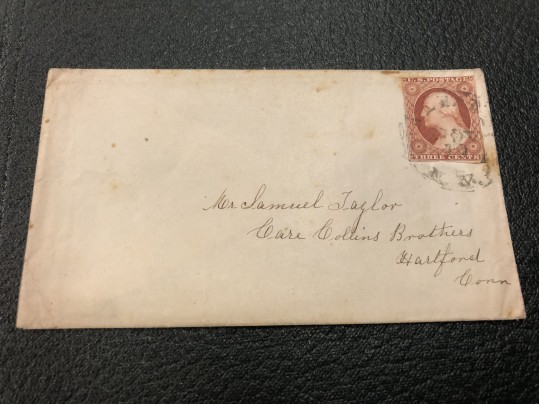 U.S. POSTAGE
THREE CENTS
Mr. Samuel Taylor
Care Collins Brothers
Hartford
Conn